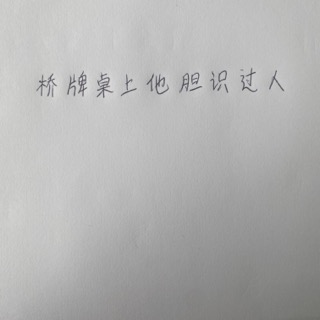 桥牌桌上他胆识过人